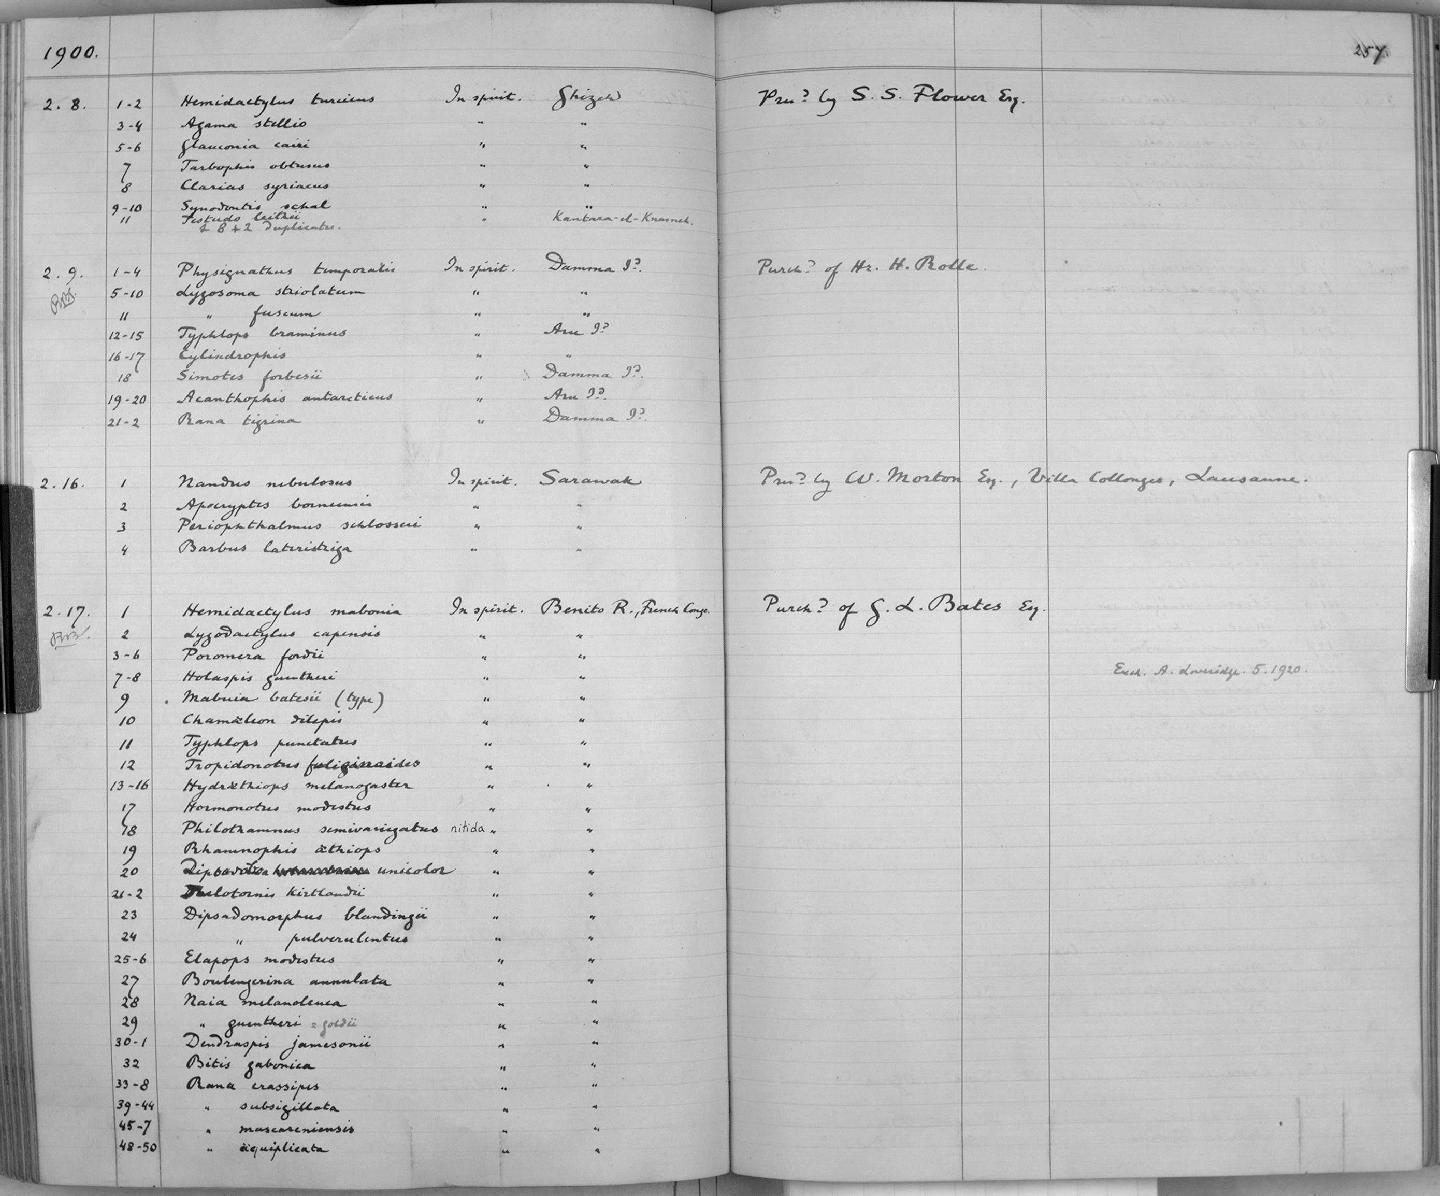 1900.
257.
2. 8. 1-2 Hemidactylus turcicus In spirit. Ghizeh Pres.d by S. S. Flower Esq.
3-4 Agama stellio " "
5-6 Glauconia cairi " "
7 Tarbophis obtusus " "
8 Clarias syriacus " "
9-10 Synodontis schal " "
11 Testudo leithii " Kantara-el-Krasneh.
& 8 + 2 duplicates.
2. 9. 1-4 Physignathus temporalis In spirit. Damma Id. Purchd of Hr. H. Rolle.
5-10 Lygosoma striolatum " "
11 " fuscum " "
12-15 Typhlops braminus " Aru Id
16-17 Cylindrophis " "
18 Simotes forbesii " Damma Id.
19-20 Acanthophis antarcticus " Aru Id.
21-2 Rana tigrina " Damma Id.
2.16. 1 Nandus nebulosus In spirit. Sarawak Presd by W. Morton Esq., Villa Collonges, Lausanne.
2 Apocryptes borneensis " "
3 Periophthalmus schlosseri " "
4 Barbus lateristriga " "
2.17. 1 Hemidactylus mabouia In spirit. Benito R., French Congo. Purchd of G. L. Bates Esq.
2 Lygodactylus capensis " "
3-6 Poromera fordii " "
7-8 Holaspis guentheri " " Exch. A. Loveridge. 5.1920.
9 Mabuia batesii (type) " "
10 Chamæleon dilepis " "
11 Typhlops punctatus " "
12 Tropidonotus fuliginoides " "
13-16 Hydræthiops melanogaster " "
17 Hormonotus modestus " "
18 Philothamnus semivariegatus nitida " "
19 Rhamnophis æthiops " "
20 unicolor " "
21-2 Thelotornis kirtlandii " "
23 Dipsadomorphus blandingii " "
24 " pulverulentus " "
25-6 Elapops modestus " "
27 Boulengerina annulata " "
28 Naia melanoleuca " "
29 " guentheri = goldii " "
30-1 Dendraspis jamesonii " "
32 Bitis gabonica " "
33-8 Rana crassipes " "
39-44 " subsigillata " "
45-7 " mascareniensis " "
48-50 " æquiplicata " "